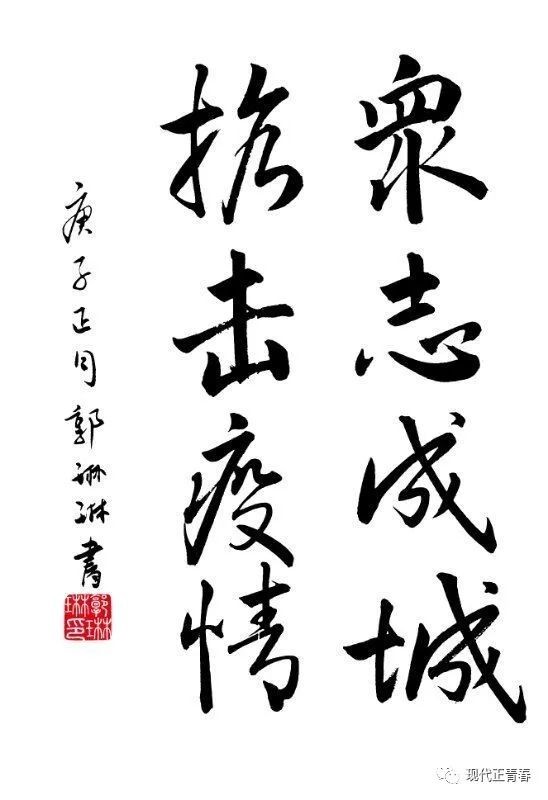 衆志成城
击疫情
庚子正月 郭琳琳書
郭琳琳印
现代正青春